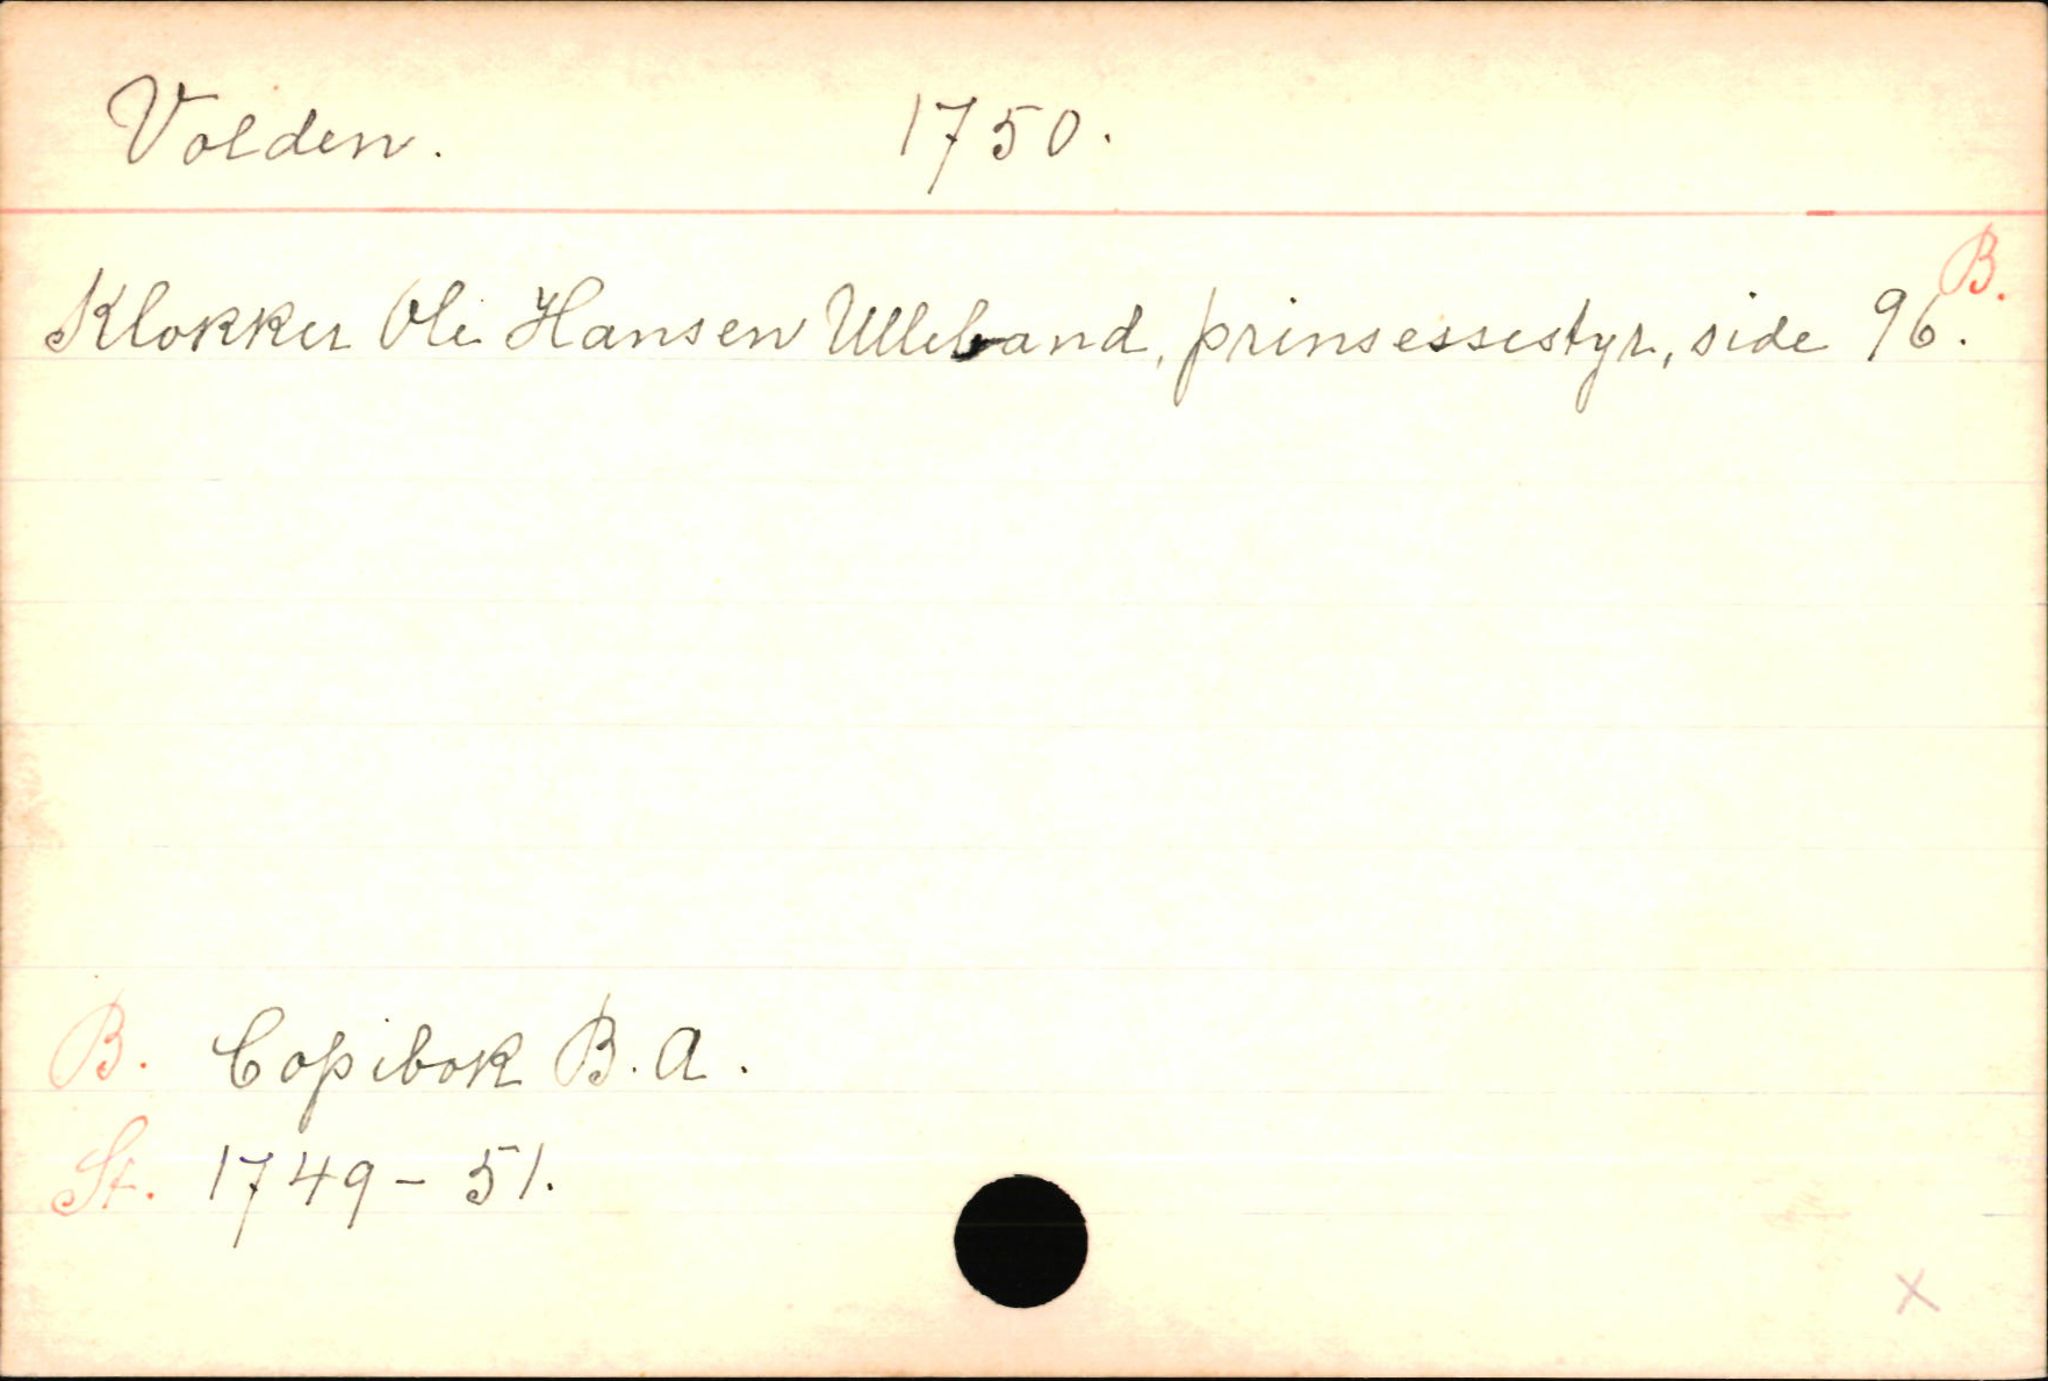 Volden. 1750.
Klokker Ole Hansen Ulleband, prinsessestyr, side 96. B.
B. Copibok B. A.
St. 1749-51.
x